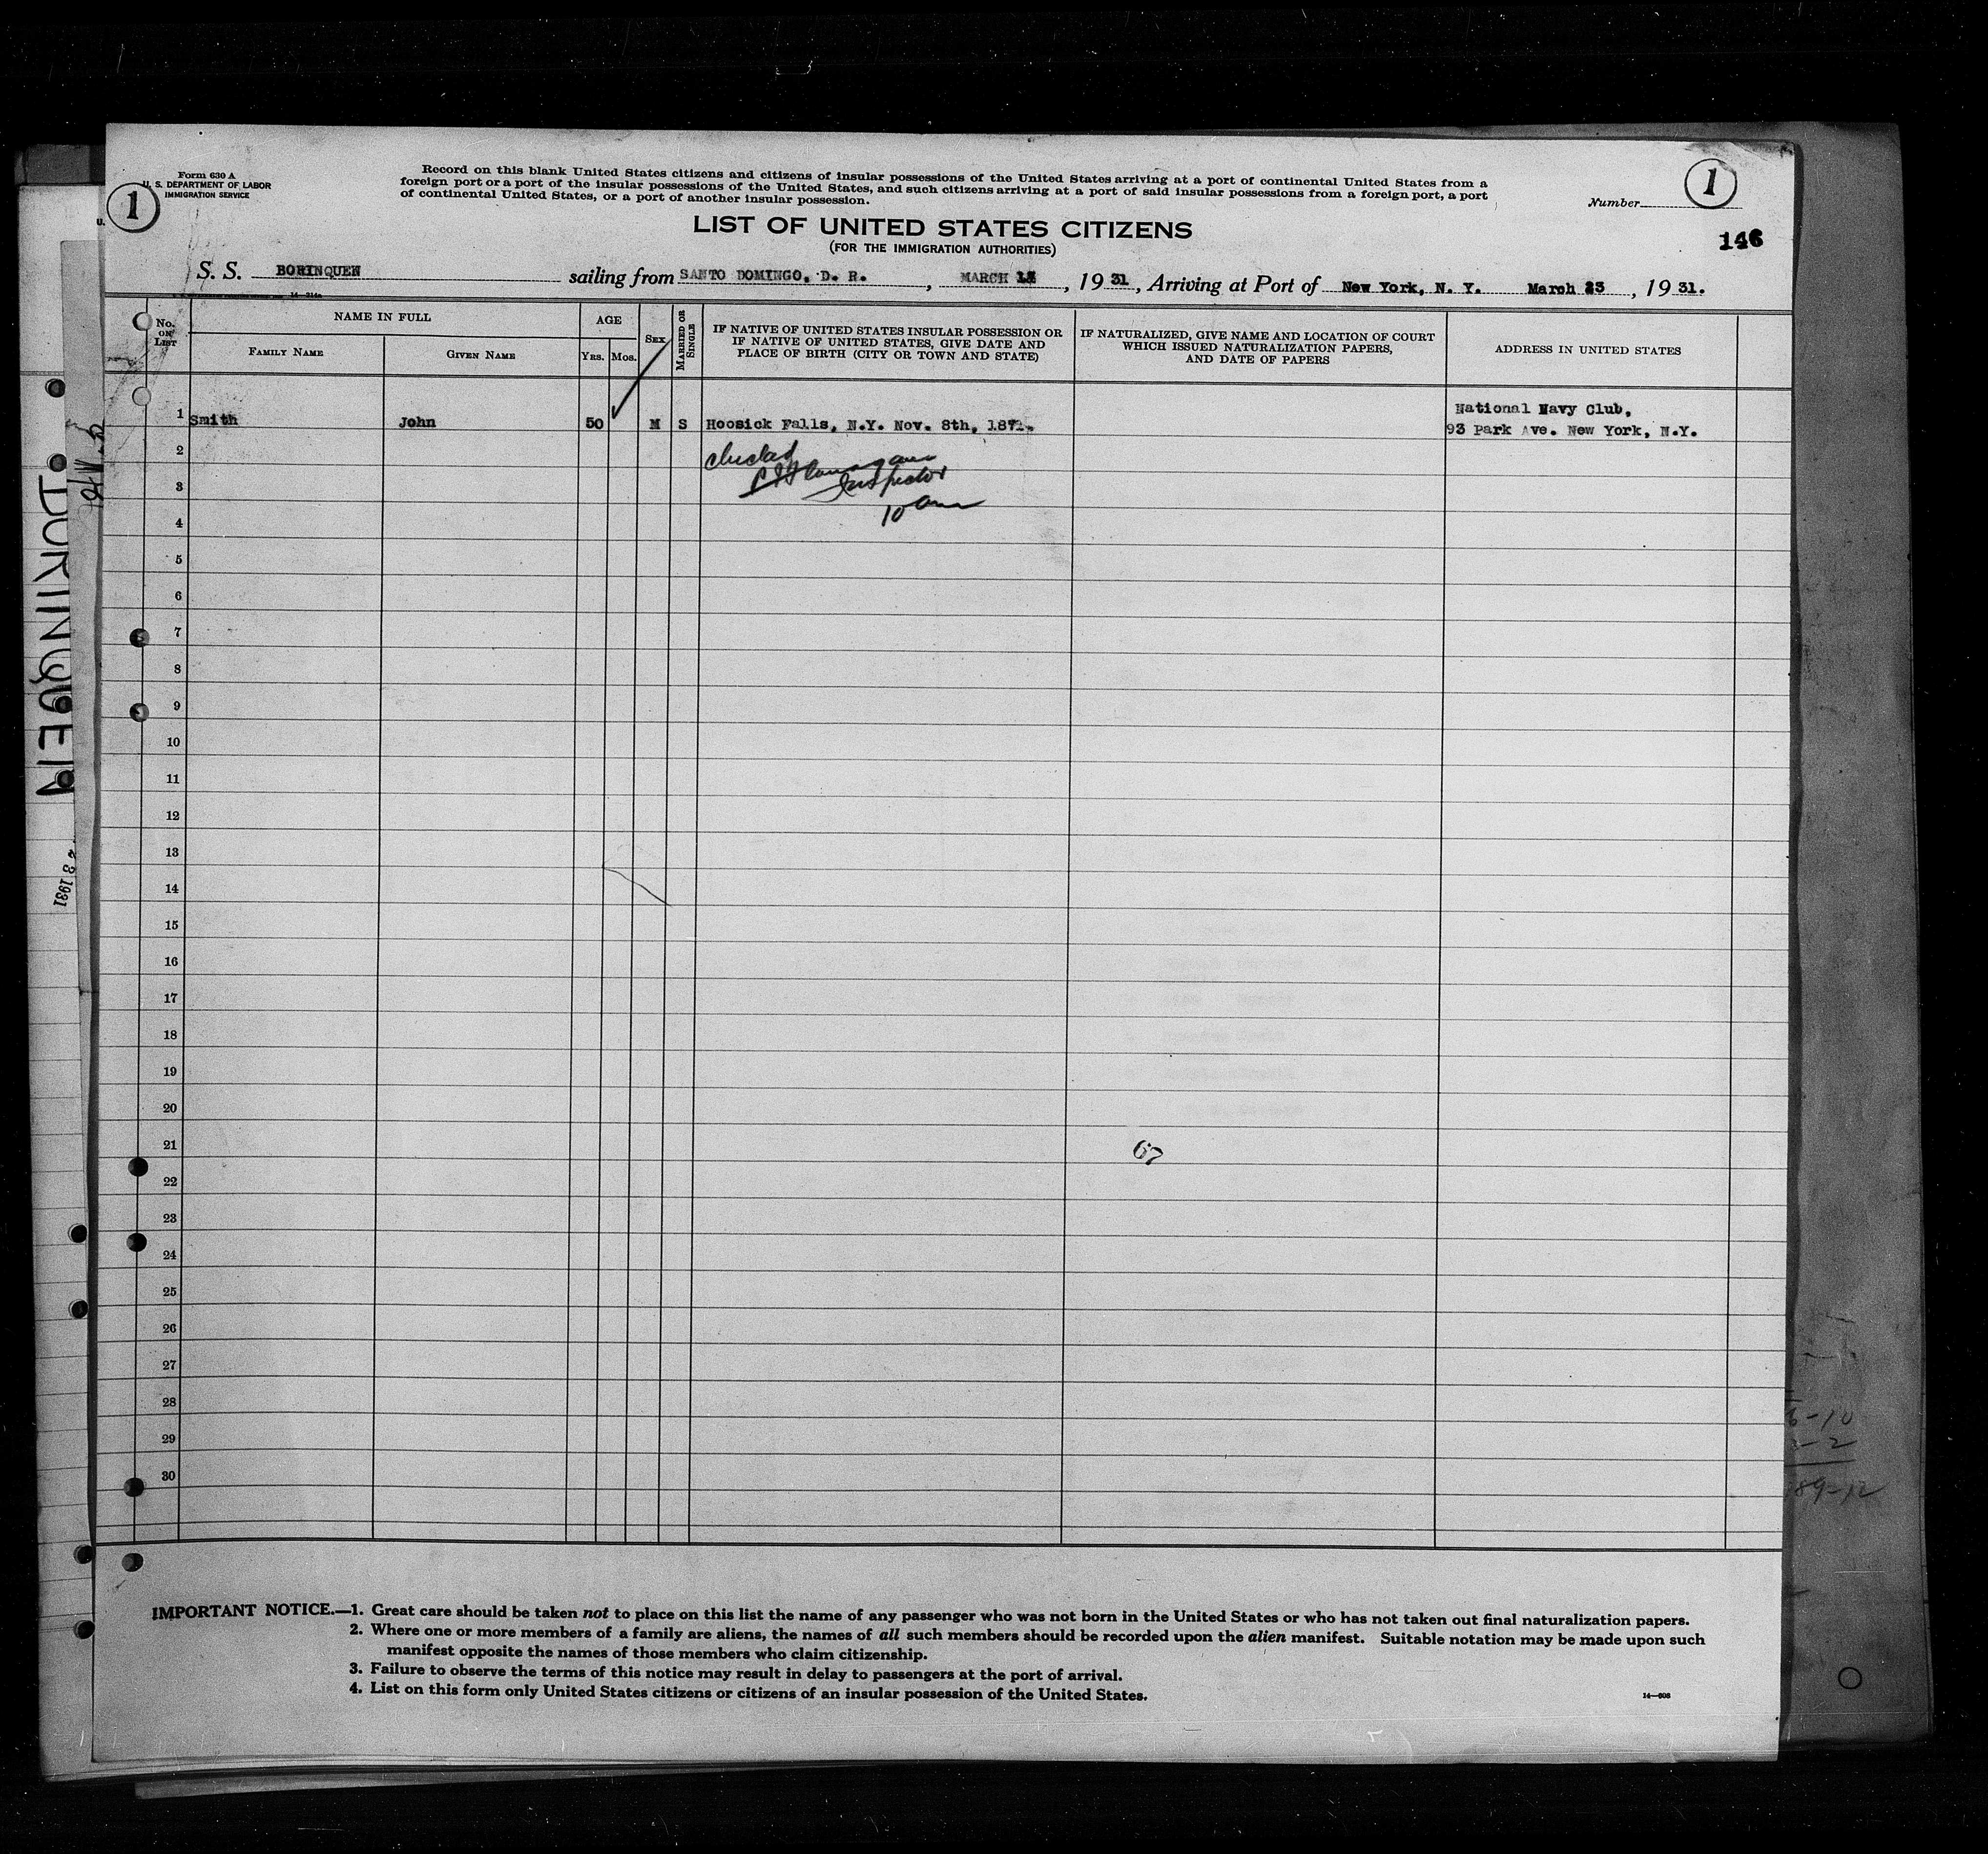 Form 630 A
U. S. DEPARTMENT OF LABOR
IMMIGRATION SERVICE
1
Record on this blank United States citizens and citizens of insular possessions of the United States arriving at a port of continental United States from a
foreign port or a port of the insular possessions of the United States, and such citizens arriving at a port of said insular possessions from a foreign port, a port
of continental United States, or a port of another insular possession.
Number
1
146
LIST OF UNITED STATES CITIZENS
(FOR THE IMMIGRATION AUTHORITIES)
S. S. BORINQUEN sailing from SANTO DOMINGO, D. R., MARCH, 1931, Arriving at Port of New York, N. Y. March 23, 1931.
No. on List
NAME IN FULL
FAMILY NAME
GIVEN NAME
AGE
YRS. MOS.
SEX
MARRIED OR SINGLE
IF NATIVE OF UNITED STATES INSULAR POSSESSION OR
IF NATIVE OF UNITED STATES, GIVE DATE AND
PLACE OF BIRTH (CITY OR TOWN AND STATE)
IF NATURALIZED, GIVE NAME AND LOCATION OF COURT
WHICH ISSUED NATURALIZATION PAPERS,
AND DATE OF PAPERS
ADDRESS IN UNITED STATES
National Navy Club,
1 Smith John 50 M S Hoosick Falls, N.Y. Nov. 8th, 93 Park Ave. New York, N.Y.
2
checked
3
Inspector
4
10 am
5
6
7
8
9
10
11
12
13
14
15
16
17
18
19
20
21
67
22
23
24
25
26
27
28
29
30
IMPORTANT NOTICE.—1. Great care should be taken not to place on this list the name of any passenger who was not born in the United States or who has not taken out final naturalization papers.
2. Where one or more members of a family are aliens, the names of all such members should be recorded upon the alien manifest. Suitable notation may be made upon such
manifest opposite the names of those members who claim citizenship.
3. Failure to observe the terms of this notice may result in delay to passengers at the port of arrival.
4. List on this form only United States citizens or citizens of an insular possession of the United States.
14—608
BORINQUEN
1931